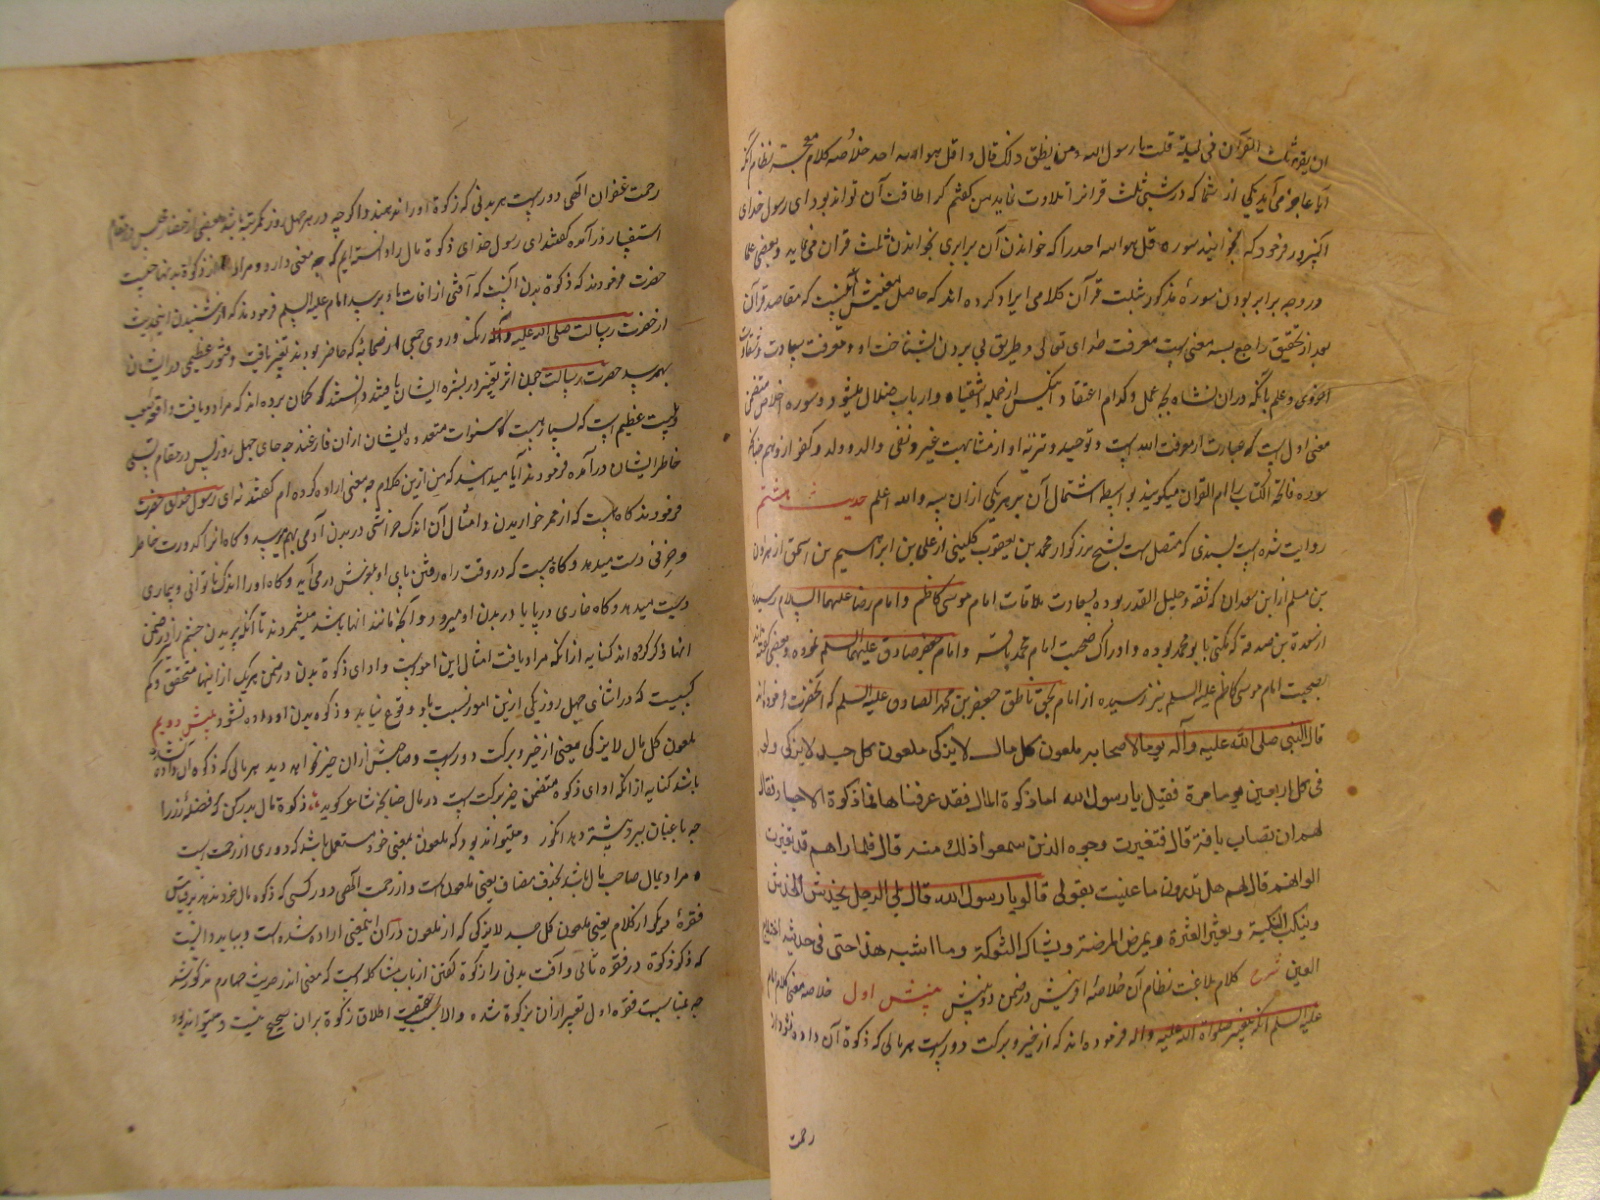 ان یقرء ثلث القرآن فی لیلة قلت یا رسول الله و من یطق ذلک قال اقل هو الله احد خلاصه کلام معجز نظام آنکه
آیا عاجز می آید یکی از شما که در شبی ثلث قرآنرا تلاوت نماید من گفتم کرا طاقت آن تواند بود ای رسول خدای
آنسرور فرمود که بخوانید سوره قل هو الله احد را که خواندن آن برابری بخواندن ثلث قرآن می نماید و بعضی علما
در وجه برابر بودن سورهٔ مذکور بثلث قرآن کلامی ایراد کرده اند که حاصل معنیش اینست که مقاصد قرآن
بعد از تحقیق راجع بسه معنی است معرفت خدای تعالی و طریق پی بردن بشناخت او و معرفت سعادت و شقاوت
اخروی و علم بآنکه در آن نشاه بچه عمل و کدام اعتقاد این کس از جمله اشقیاء و ارباب ضلال میشود و سوره اخلاص متضمن
معنی اول است که عبارت از معرفت الله است و توحید و تنزیه او از مشابهت غیر و نفی والد و ولد و کفو از و هم چنانکه
سوره فاتحة الکتاب را ام القرآن میگویند بواسطه اشتمال آن بر هر یکی ازان سه و الله اعلم حدیث هشتم
روایت شده است بسندی که متصل است بشیخ بزرگوار محمد بن یعقوب کلینی از علی بن ابراهیم بن اسحق از هرون
بن مسلم از ابن سعدان که ثقه و جلیل القدر بوده بسعادت ملاقات امام موسی کاظم و امام رضا علیهما السلام رسیده
از مسعدة بن صدقه که مکنی بابو محمد بوده و ادراک صحبت امام محمد باقر و امام جعفر صادق علیهما السلم نموده و بعضی گفته اند
بصحبت امام موسی کاظم علیه السلم نیز رسیده از امام بحق ناطق جعفر بن محمد الصادق علیه السلم که آنحضرت فرموده اند
قال النبی صلی الله علیه و آله یوما لاصحابه ملعون کل مال لا یزکی ملعون کل جسد لا یزکی ولو
فی کل اربعین یوما مرة فقیل یا رسول الله اما زکوة المال فقد عرفناها فما زکوة الاجساد فقال
لهم ان تصاب بآفة قال فتغیرت وجوه الذین سمعوا ذلک منه قال فلما راهم قد تغیرت
الوانهم قال لهم هل تدرون ما عنیت بقولی قالوا یا رسول الله قال بلی الرجل یخدش الخدش
و ینکب النکبة و یعثر العثرة و یمرض المرضة و یشاک الشوکة و ما اشبه هذا حتی فی حدیثه اختلاج
العین شرح کلام بلاغت نظام آن خلاصه آفرینش در ضمن دو بینش بینش اول خلاصه معنی کلام امام
علیه السلم آنکه پیغمبر صلوات الله علیه و اله فرموده اند که از خیر و برکت دور است هر مالی که زکوة آن داده نشود و از
رحمت
رحمت غفران الهی دور است هر بدنی که زکوة او را ندهند و اگر چه در هر چهل روز یکمرتبه باشد بعضی از حضار مجلس در مقام
استفسار در آمده گفتند ای رسول خدای زکوة مال را دانسته ایم که چه معنی دارد و مراد از زکوة بدنها چیست
حضرت فرمودند که زکوة بدن آنست که آفتی از آفات باو برسد امام علیه السلم فرمودند که از شنیدن این حدیث
از حضرت رسالت صلی الله علیه و آله رنگ و روی جمعی از صحابه که حاضر بودند تغییر یافت و فتور عظیمی در ایشان
بهمرسید حضرت رسالت چون اثر تغییر در بشره ایشان یافتند دانستند که گمان برده اند که مراد و یافت واقعه
عظیم است که بسیار است که سنوات متعدده ایشان ازان فارغند چه جای چهل روز پس در مقام تسلی
خاطر ایشان در آمده فرمودند آیا میدانید که من ازین کلام چه معنی اراده کرده ام گفتند نه ای رسول خدای حضرت
فرمودند گاه هست که از ممر خواریدن و امثال آن اندک خراشی در بدن آدمی بهم میرسد و گاه او را کدورت خاطر
و حزنی دست میدهد و گاه هست که در وقت راه رفتن پای او بلغزش در می آید و گاه او را اندک ناتوانی و بیماری
دست میدهد و گاه خاری در پا یا در بدن او میرود و آنچه مانند اینها باشد میشمردند تا آنکه پریدن چشم را در ضمن
اینها ذکر کرده اند کنایه از آنکه مراد یافت امثال این امور است و ادای زکوة بدن در ضمن هر یک از اینها متحقق و کم
کسیست که در اثنای چهل روز یکی ازین امور نسبت باو وقوع نیابد و زکوه بدن او داده نشود بینش دویم
ملعون کل مال لا یزکی معنی از خیر و برکت دور است و صاحبش ازان خیر نخواهد دید هر مالی که زکوه آن داده نشده
باشد کنایه از آنکه ادای زکوه متضمن خیر و برکت است در مال چنانچه شاعر گوید زکوة مال بدر کن که فضلهٔ رز را
چو باغبان ببرد بیشتر دهد انگور و میتواند بود که ملعون بمعنی خود مستعمل باشد که دوری از رحمت است
و مراد بمال صاحب مال باشد بحذف مضاف یعنی ملعون است و از رحمت الهی دور کسی که زکوه مال خود ندهد بر قیاس
فقرهٔ دیگر از کلام یعنی ملعون کل جسد لا یزکی که از ملعون در آن اینمعنی اراده شده است و بباید دانست
که ذکر زکوة در فقره ثانی و آفت بدنی را زکوة گفتن از باب مشاکله است که معنی آن در حدیث چهارم مذکور شد
چه بمناسبت فقره اول تعبیر ازان بزکوة شده و الا بحسب حقیقت اطلاق زکوة بران صحیح نیست و میتواند بود